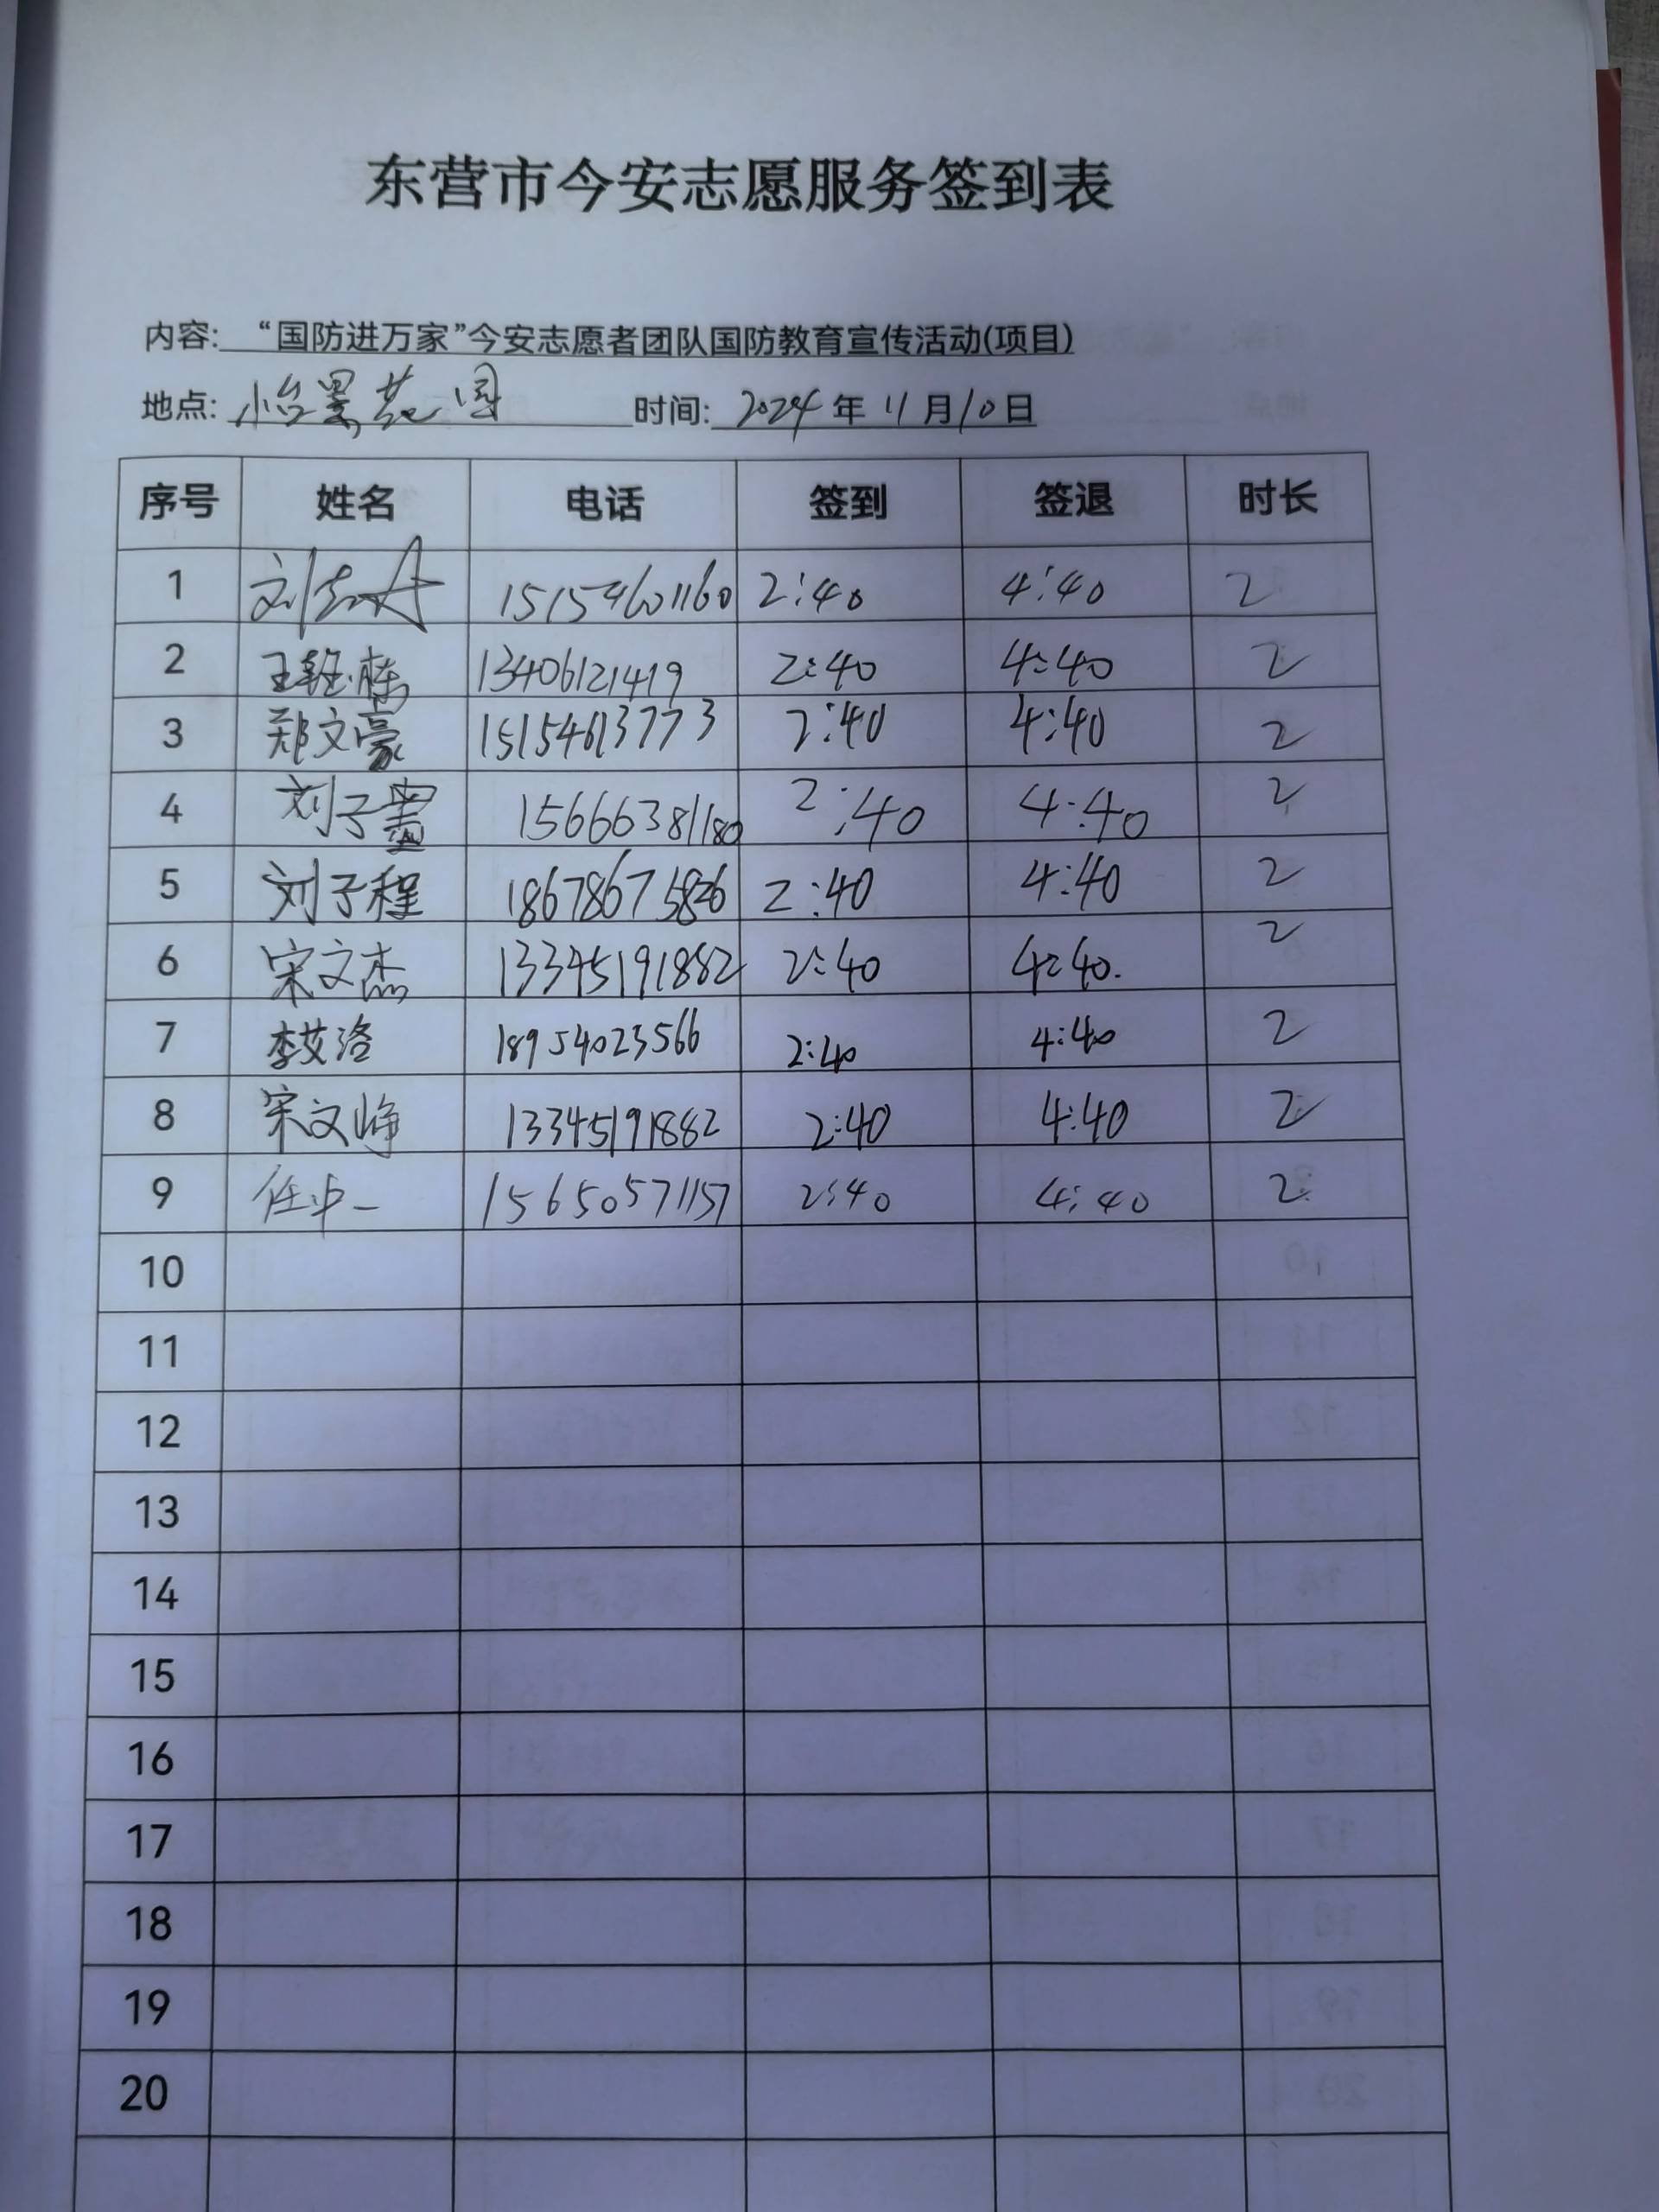 东营市今安志愿服务签到表
内容: “国防进万家”今安志愿者团队国防教育宣传活动(项目)
地点: 怡景花园 时间: 2024 年 11 月 10 日
序号 姓名 电话 签到 签退 时长
1 刘 15154601160 2:40 4:40 2
2 王 栋 13406121419 2:40 4:40 2
3 郑文豪 15154613773 2:40 4:40 2
4 刘子 15666381180 2:40 4:40 2
5 刘子程 18678675826 2:40 4:40 2
6 宋文杰 13345191882 2:40 4:40. 2
7 李艾洛 18954023566 2:40 4:40 2
8 宋文峥 13345191882 2:40 4:40 2
9 任 一 15650571157 2:40 4:40 2
10
11
12
13
14
15
16
17
18
19
20